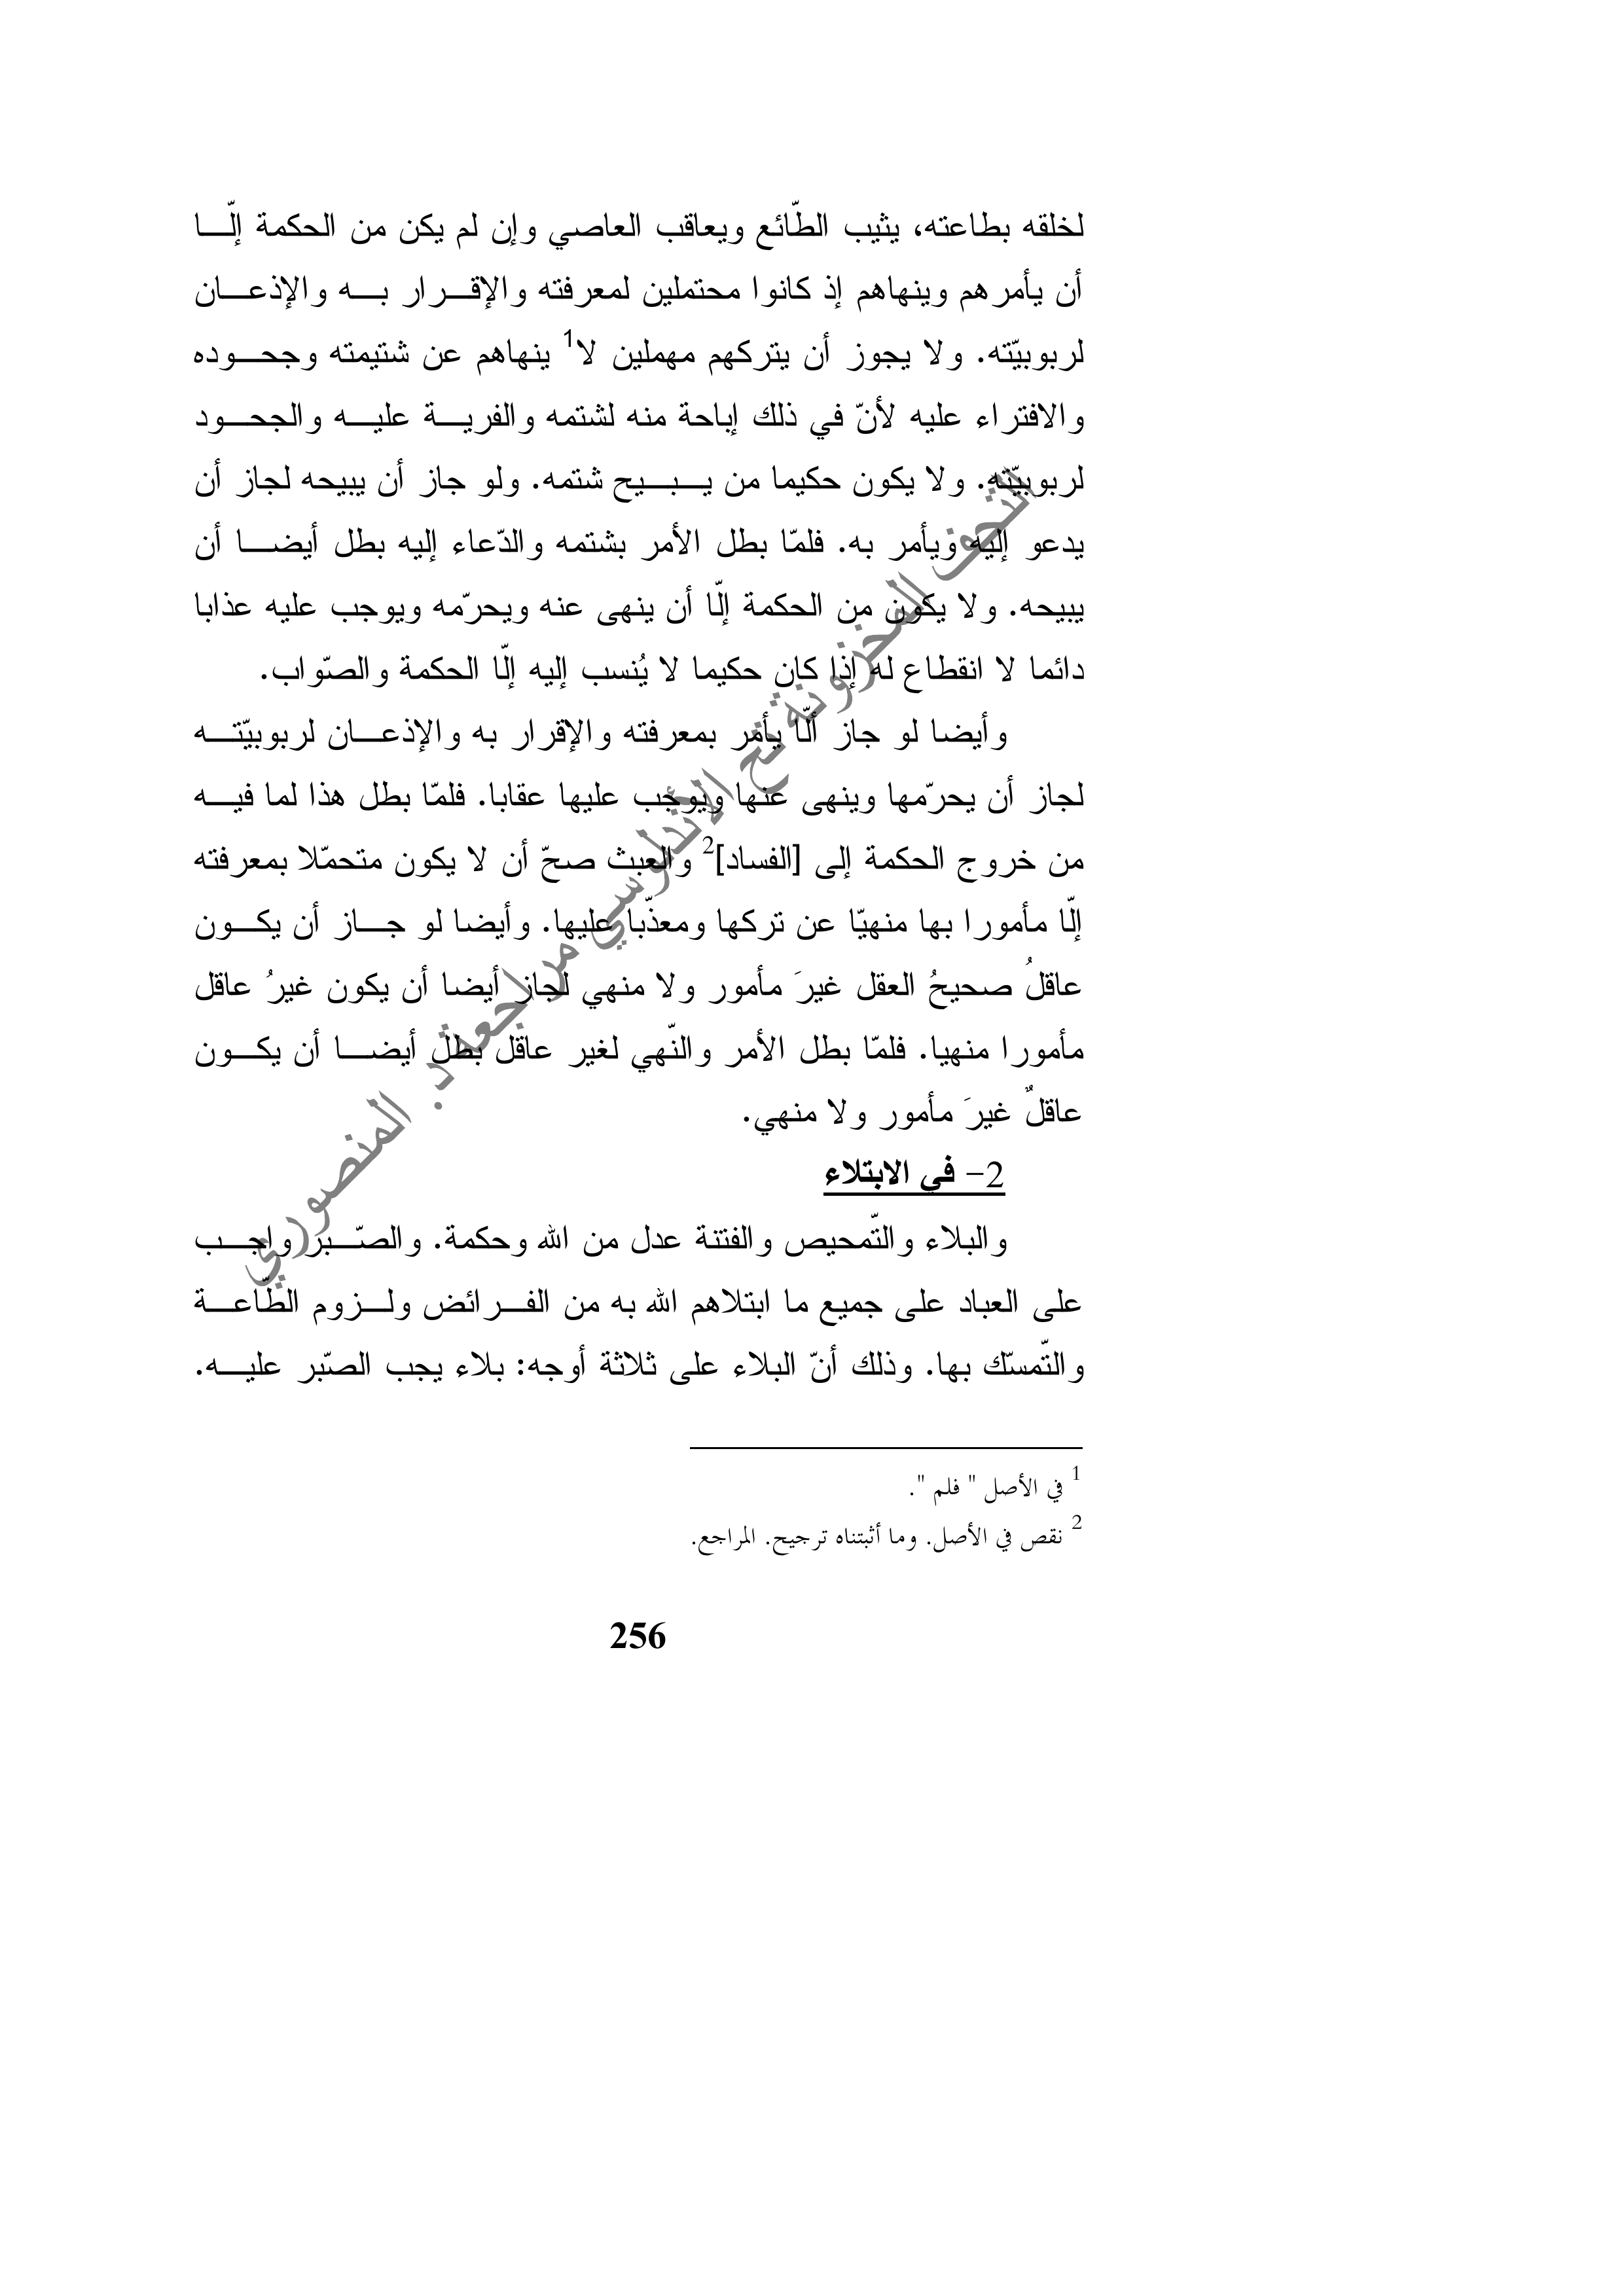 لخلقه بطاعته، يثيب الطّائع ويعاقب العاصي وإن لم يكن من الحكمة إلّا
أن يأمرهم وينهاهم إذ كانوا محتملين لمعرفته والإقرار به والإذعان
لربوبيّته. ولا يجوز أن يتركهم مهملين لا1 ينهاهم عن شتيمته وجحوده
والافتراء عليه لأنّ في ذلك إباحة منه لشتمه والفرية عليه والجحود
لربوبيّته. ولا يكون حكيما من يبيح شتمه. ولو جاز أن يبيحه لجاز أن
يدعو إليه ويأمر به. فلمّا بطل الأمر بشتمه والدّعاء إليه بطل أيضا أن
يبيحه. ولا يكون من الحكمة إلّا أن ينهى عنه ويحرّمه ويوجب عليه عذابا
دائما لا انقطاع له إذا كان حكيما لا يُنسب إليه إلّا الحكمة والصّواب.
وأيضا لو جاز ألّا يأمر بمعرفته والإقرار به والإذعان لربوبيّته
لجاز أن يحرّمها وينهى عنها ويوجب عليها عقابا. فلمّا بطل هذا لما فيه
من خروج الحكمة إلى [الفساد]2 والعبث صحّ أن لا يكون متحمّلا بمعرفته
إلّا مأمورا بها منهيّا عن تركها ومعذّبا عليها. وأيضا لو جاز أن يكون
عاقلُ صحيحُ العقل غيرَ مأمور ولا منهي لجاز أيضا أن يكون غيرُ عاقل
مأمورا منهيا. فلمّا بطل الأمر والنّهي لغير عاقل بطل أيضا أن يكون
عاقلٌ غيرَ مأمور ولا منهي.
2- في الابتلاء
والبلاء والتّمحيص والفتنة عدل من الله وحكمة. والصّبر واجب
على العباد على جميع ما ابتلاهم الله به من الفرائض ولزوم الطّاعة
والتّمسّك بها. وذلك أنّ البلاء على ثلاثة أوجه: بلاء يجب الصّبر عليه.
1 في الأصل " فلم ".
2 نقص في الأصل. وما أثبتناه ترجيح. المراجع.
256
التحف المخزونة تح الأندلوسي مراجعة د. المنصوري